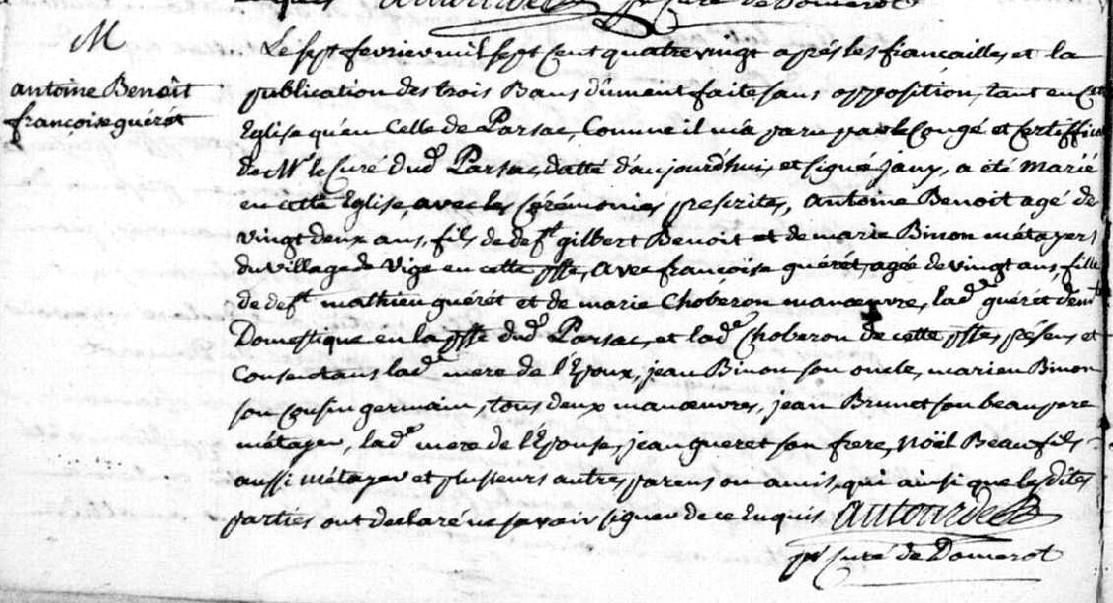 M
antoine Benoît
françoise guérét
Le sept fevrier mil sept cent quatre vingt après les fiançailles, et la
publication des trois Bans dûment faite sans opposition, tant en cette
Eglise qu'en Celle de Parsac, Comme il m'a paru par le Congé et Certifficat
de Mr le Curé dud. Parsac, datté d'aujourd'hui, et signé Jany, a été Marié
en cette Eglise, avec les Cérémonies prescrites, Antoine Benoit agé de
vingt deux ans, fils de deft gilbert Benoit et de marie Binon métayers
du village de Vige en cette psse, avec françoise guérét, agée de vingt ans, fille
de deft mathieu guérét et de marie Choberon manœuvre, lade guérét demt
Domestique en la psse dud. Parsac, et lade Choberon de cette psse, présens et
Consentans lade mere de l'Epoux, jean Binon son oncle, marien Binon
son cousin germain, tous deux manœuvres, jean Brunet son beaupere
métayer, lade mere de l'Epouse, jean gueret son frere, Noël Beaufils
aussi métayer et plusieurs autres parens ou amis, qui ainsi que les dites
parties ont declaré ne savoir signer de ce Enquis
curé de Domerot